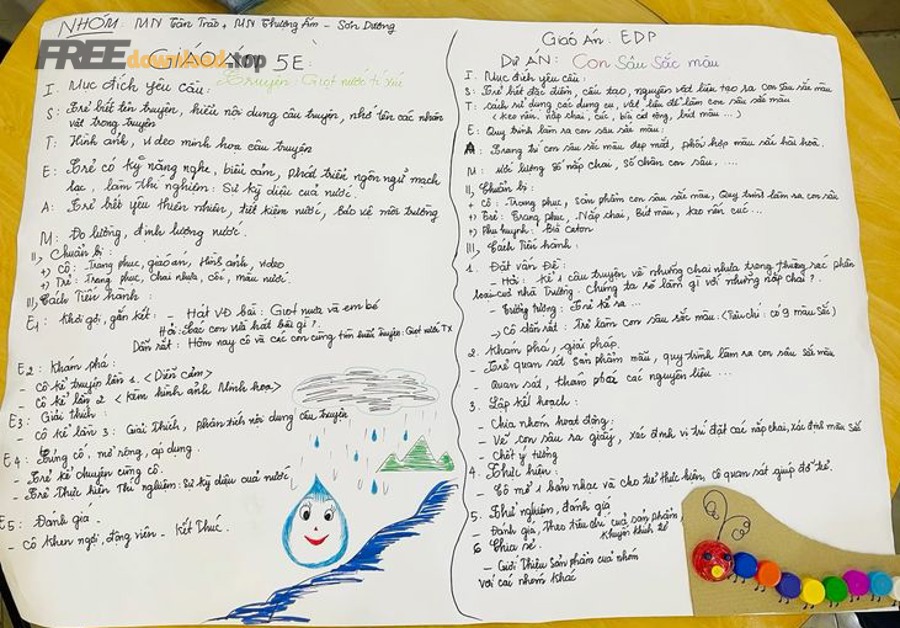 NHÓM: MN Tân Trào + MN Thượng Ấm - Sơn Dương
FREEdownload.top
GIÁO ÁN 5E:
Truyện: Giọt nước tí xíu
I. Mục đích yêu cầu:
S: Trẻ biết tên truyện, hiểu nội dung câu truyện, nhớ tên các nhân
vật trong truyện
T: Hình ảnh, video minh hoạ câu truyện
E: Trẻ có kỹ năng nghe, biểu cảm, phát triển ngôn ngữ mạch
lạc, làm thí nghiệm: Sự kỳ diệu của nước.
A: Trẻ biết yêu thiên nhiên, tiết kiệm nước, bảo vệ môi trường
M: Đo lường, định lượng nước.
II, Chuẩn bị:
+) Cô: Trang phục, giáo án, Hình ảnh, video
+) Trẻ: Trang phục, chai nhựa, cốc, màu nước.
III, Cách Tiến hành:
E1: Khơi gợi, gắn kết: - Hát VĐ bài: Giọt nưa và em bé
Hỏi: Các con vừa hát bài gì?.
Dẫn sắt: Hôm nay cô và các con cùng tìm hiểu truyện: Giọt nước TX
E2: Khám phá:
- Cô kể truyện lần 1. <Diễn cảm>
- Cô kể lần 2 <Kèm hình ảnh Minh hoạ>
E3: Giải thích:
- Cô kể lần 3: Giải Thích, phân tích nội dung câu truyện
E4: Củng cố, mở rộng, áp dụng.
- Trẻ kể chuyện cùng cô.
- Trẻ Thực hiện Thí nghiệm: sự kỳ diệu của nước
E5: Đánh giá.
- Cô khen ngợi, động viên - Kết Thúc.
Giáo Án: EDP
DỰ ÁN: Con Sâu Sắc màu
I. Mục đích yêu cầu:
S: Trẻ biết đặc điểm, cấu tạo, nguyên vật liệu tạo ra con sâu sắc màu
T: Cách sử dụng các dụng cụ, vật liệu để làm con sâu sắc màu
(Keo nến, nắp chai, cúc, bìa cát tông, bút màu...)
E: Quy trình làm ra con sâu sắc màu:
A: Trang trí con sâu sắc màu đẹp mắt, phối hợp màu sắc hài hoà.
M: Ước lượng số nắp chai, số chân con sâu, ....
II, Chuẩn bị:
+ Cô: Trang phục, sản phẩm con sâu sắc màu, Quy trình làm ra con sâu
+) Trẻ: Trang phục, Nắp chai, Bút màu, keo nến cúc...
+) Phụ huynh: Bìa Caton
III, Cách Tiến hành:
1. Đặt vấn Đề:
- Hỏi: Kể 1 câu truyện về những chai nhựa trong thùng rác phân
loại của nhà Trường. Chúng ta sẽ làm gì với những nắp chai?.
- Tưởng tượng: Trẻ kể ra...
-> Cô dẫn sắt: Trẻ làm con sâu sắc màu: (Tiêu chí: có 9 màu sắc)
2. Khám phá, giải pháp.
- Trẻ quan sát sản phẩm mẫu, quy trình làm ra con sâu sắc màu
- Quan sát, thám phá các nguyên liệu ...
3. Lập kế hoạch:
- Chia nhóm hoạt động:
- Vẽ con sâu ra giấy, xác định vị trí đặt các nắp chai, xác định màu sắc
- Chốt ý tưởng
4. Thực hiện:
- Cô mở 1 bản nhạc và cho trẻ thực hiện, cô quan sát giúp đỡ trẻ.
5. Thử nghiệm, đánh giá
- Đánh giá, Theo tiêu chí của sản phẩm,
Khuyến khích trẻ
6 Chia sẻ.
- Giới Thiệu Sản phẩm của nhóm
với các nhóm khác